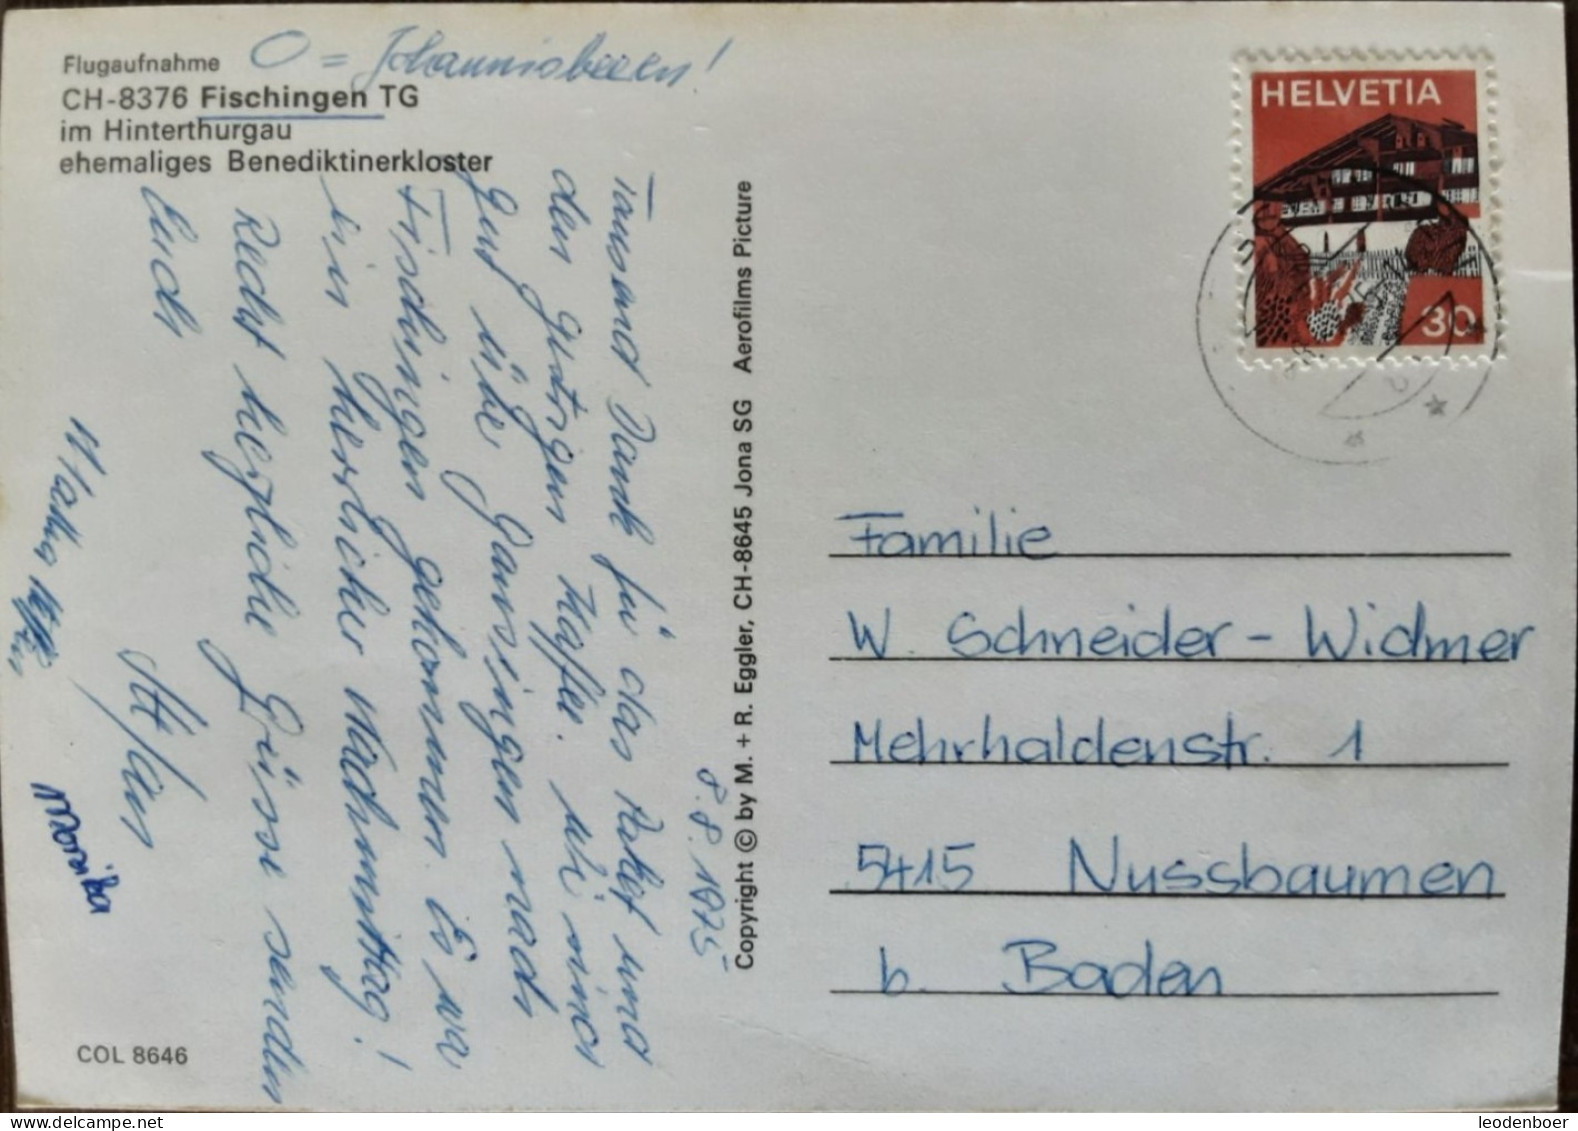 O = Johannisbeeren!
Flugaufnahme
CH-8376 Fischingen TG
im Hinterthurgau
ehemaliges Benediktinerkloster
8.8.1975
Tausend Dank für das Asthof und
den gluschtigen Kaffee. Wir sind
gut über Gansingen nach
Fischingen gekommen. Es wa
ein herrlicher Nachmittag!
Recht herzliche Grüsse senden
Euch
Monika
COL 8646
Copyright © by M. + R. Eggler, CH-8645 Jona SG Aerofilms Picture
HELVETIA
30
Familie
W. Schneider-Widmer
Mehrhaldenstr. 1
5415 Nussbaumen
b. Baden
leodenboer